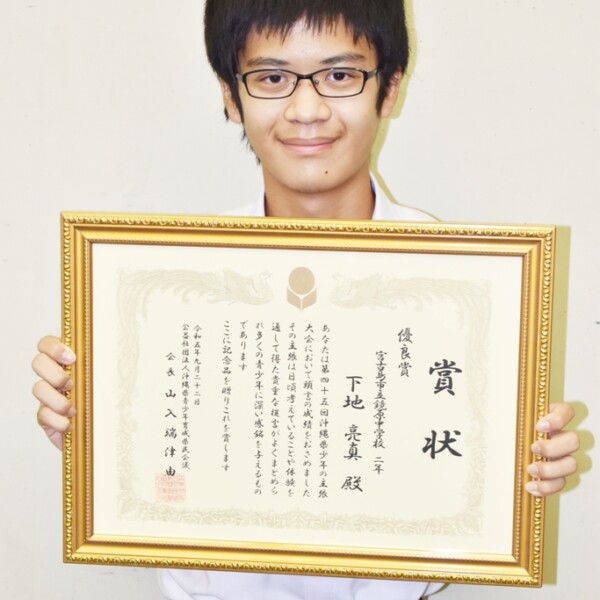 賞状
優良賞
宮古島市立鏡原中学校 二年
下地 亮真 殿
あなたは第四十五回沖縄県少年の主張
大会において頭書の成績をおさめました
その主張は日頃考えていることや体験を
通して得た貴重な提言がよくまとめら
れ多くの青少年に深い感銘を与えるもの
であります
ここに記念品を贈りこれを賞します
令和五年九月二十二日
公益社団法人沖縄県青少年育成県民会議
会長 山入端 津由